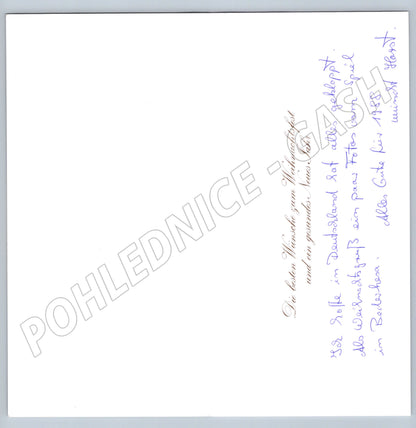 Die besten Wünsche zum Weihnachtsfest
und ein gesundes Neues Jahr
Ich hoffe in Deutschland hat alles geklappt.
Als Weihnachtsgruß ein paar Fotos vom Spiel
in
Alles Gute für 1988
wünscht Horst.
POHLEDNICE - GASH